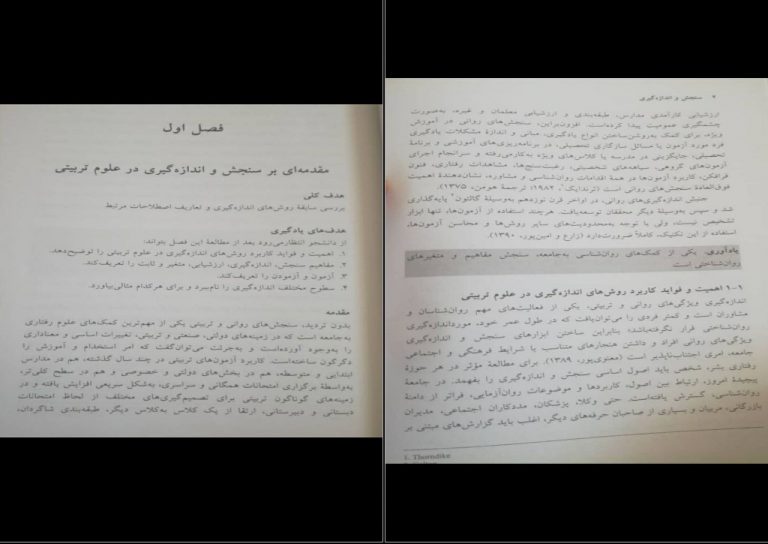 فصل اول
مقدمه‌ای بر سنجش و اندازه‌گیری در علوم تربیتی
هدف کلی
بررسی سابقهٔ روش‌های اندازه‌گیری و تعاریف اصطلاحات مرتبط
هدف‌های یادگیری
از دانشجو انتظار می‌رود بعد از مطالعهٔ این فصل بتواند:
۱. اهمیت و فواید کاربرد روش‌های اندازه‌گیری در علوم تربیتی را توضیح‌دهد.
۲. مفاهیم سنجش، اندازه‌گیری، ارزشیابی، متغیر و ثابت را تعریف‌کند.
۳. آزمون و آزمودن را تعریف‌کند.
۴. سطوح مختلف اندازه‌گیری را نام‌ببرد و برای هرکدام مثالی‌بیاورد.
مقدمه
بدون تردید، سنجش‌های روانی و تربیتی یکی از مهم‌ترین کمک‌های علوم رفتاری
به‌جامعه است که در زمینه‌های دولتی، صنعتی و تربیتی، تغییرات اساسی و معناداری
را به‌وجود آورده‌است و به‌جرئت می‌توان‌گفت که امر استخدام و آموزش را
دگرگون ساخته‌است. کاربرد آزمون‌های تربیتی در چند سال گذشته، هم در مدارس
ابتدایی و متوسطه، هم در بخش‌های دولتی و خصوصی و هم در سطح کلی‌تر،
به‌واسطهٔ برگزاری امتحانات همگانی و سراسری، به‌شکل سریعی افزایش یافته و در
زمینه‌های گوناگون تربیتی برای تصمیم‌گیری‌های مختلف از لحاظ امتحانات
دبستانی و دبیرستانی، ارتقا از یک کلاس به‌کلاس دیگر، طبقه‌بندی شاگردان،
۲ سنجش و اندازه‌گیری
ارزشیابی کارآمدی مدارس، طبقه‌بندی و ارزشیابی معلمان و غیره، به‌صورت
چشمگیری عمومیت پیدا کرده‌است. افزون‌براین، سنجش‌های روانی در آموزش
ویژه، برای کمک به‌روشن‌ساختن انواع یادگیری، مبانی و اندازهٔ مشکلات یادگیری
فرد مورد آزمون یا مسائل سازگاری تحصیلی، در برنامه‌ریزی‌های آموزشی و برنامهٔ
تحصیلی، جایگزینی در مدرسه یا کلاس‌های ویژه به‌کارمی‌رفته و سرانجام اجرای
آزمون‌های گروهی، سیاهه‌های شخصیتی، رغبت‌سنج‌ها، مشاهدات رفتاری، فنون
فرافکن، کاربرد آزمون‌ها در همهٔ اقدامات روان‌شناسی و مشاوره، نشان‌دهندهٔ اهمیت
فوق‌العادهٔ سنجش‌های روانی است (ثرندایک۱، ۱۹۸۲، ترجمهٔ هومن، ۱۳۷۵).
جنبش اندازه‌گیری‌های روانی، در اواخر قرن نوزدهم به‌وسیلهٔ گالتون۲ پایه‌گذاری
شد و سپس به‌وسیلهٔ دیگر محققان توسعه‌یافت. هرچند استفاده از آزمون‌ها، تنها ابزار
تشخیص نیست، ولی با توجه به‌محدودیت‌های سایر روش‌ها و محاسن آزمون‌ها،
استفاده از این تکنیک، کاملاً ضرورت‌دارد (زارع و امین‌پور، ۱۳۹۰).
یادآوری. یکی از کمک‌های روان‌شناسی به‌جامعه، سنجش مفاهیم و متغیرهای
روان‌شناختی است
۱-۱ اهمیت و فواید کاربرد روش‌های اندازه‌گیری در علوم تربیتی
اندازه‌گیری ویژگی‌های روانی و تربیتی، یکی از فعالیت‌های مهم روان‌شناسان و
مشاوران است و کمتر فردی را می‌توان‌یافت که در طول عمر خود، مورداندازه‌گیری
روان‌شناختی قرار نگرفته‌باشد، بنابراین ساختن ابزارهای سنجش و اندازه‌گیری
ویژگی‌های روانی افراد و داشتن هنجارهای متناسب با شرایط فرهنگی و اجتماعی
جامعه، امری اجتناب‌ناپذیر است (معنوی‌پور، ۱۳۸۹). برای مطالعهٔ مؤثر در هر حوزهٔ
رفتاری بشر، شخص باید اصول اساسی سنجش و اندازه‌گیری را بفهمد. در جامعهٔ
پیچیدهٔ امروز، ارتباط بین اصول، کاربردها و موضوعات روان‌آزمایی، فراتر از دامنهٔ
روان‌شناسی، گسترش یافته‌است. حتی وکلا، پزشکان، مددکاران اجتماعی، مدیران
بازرگانی، مربیان و بسیاری از صاحبان حرفه‌های دیگر، اغلب باید گزارش‌های مبتنی بر
1. Thorndike